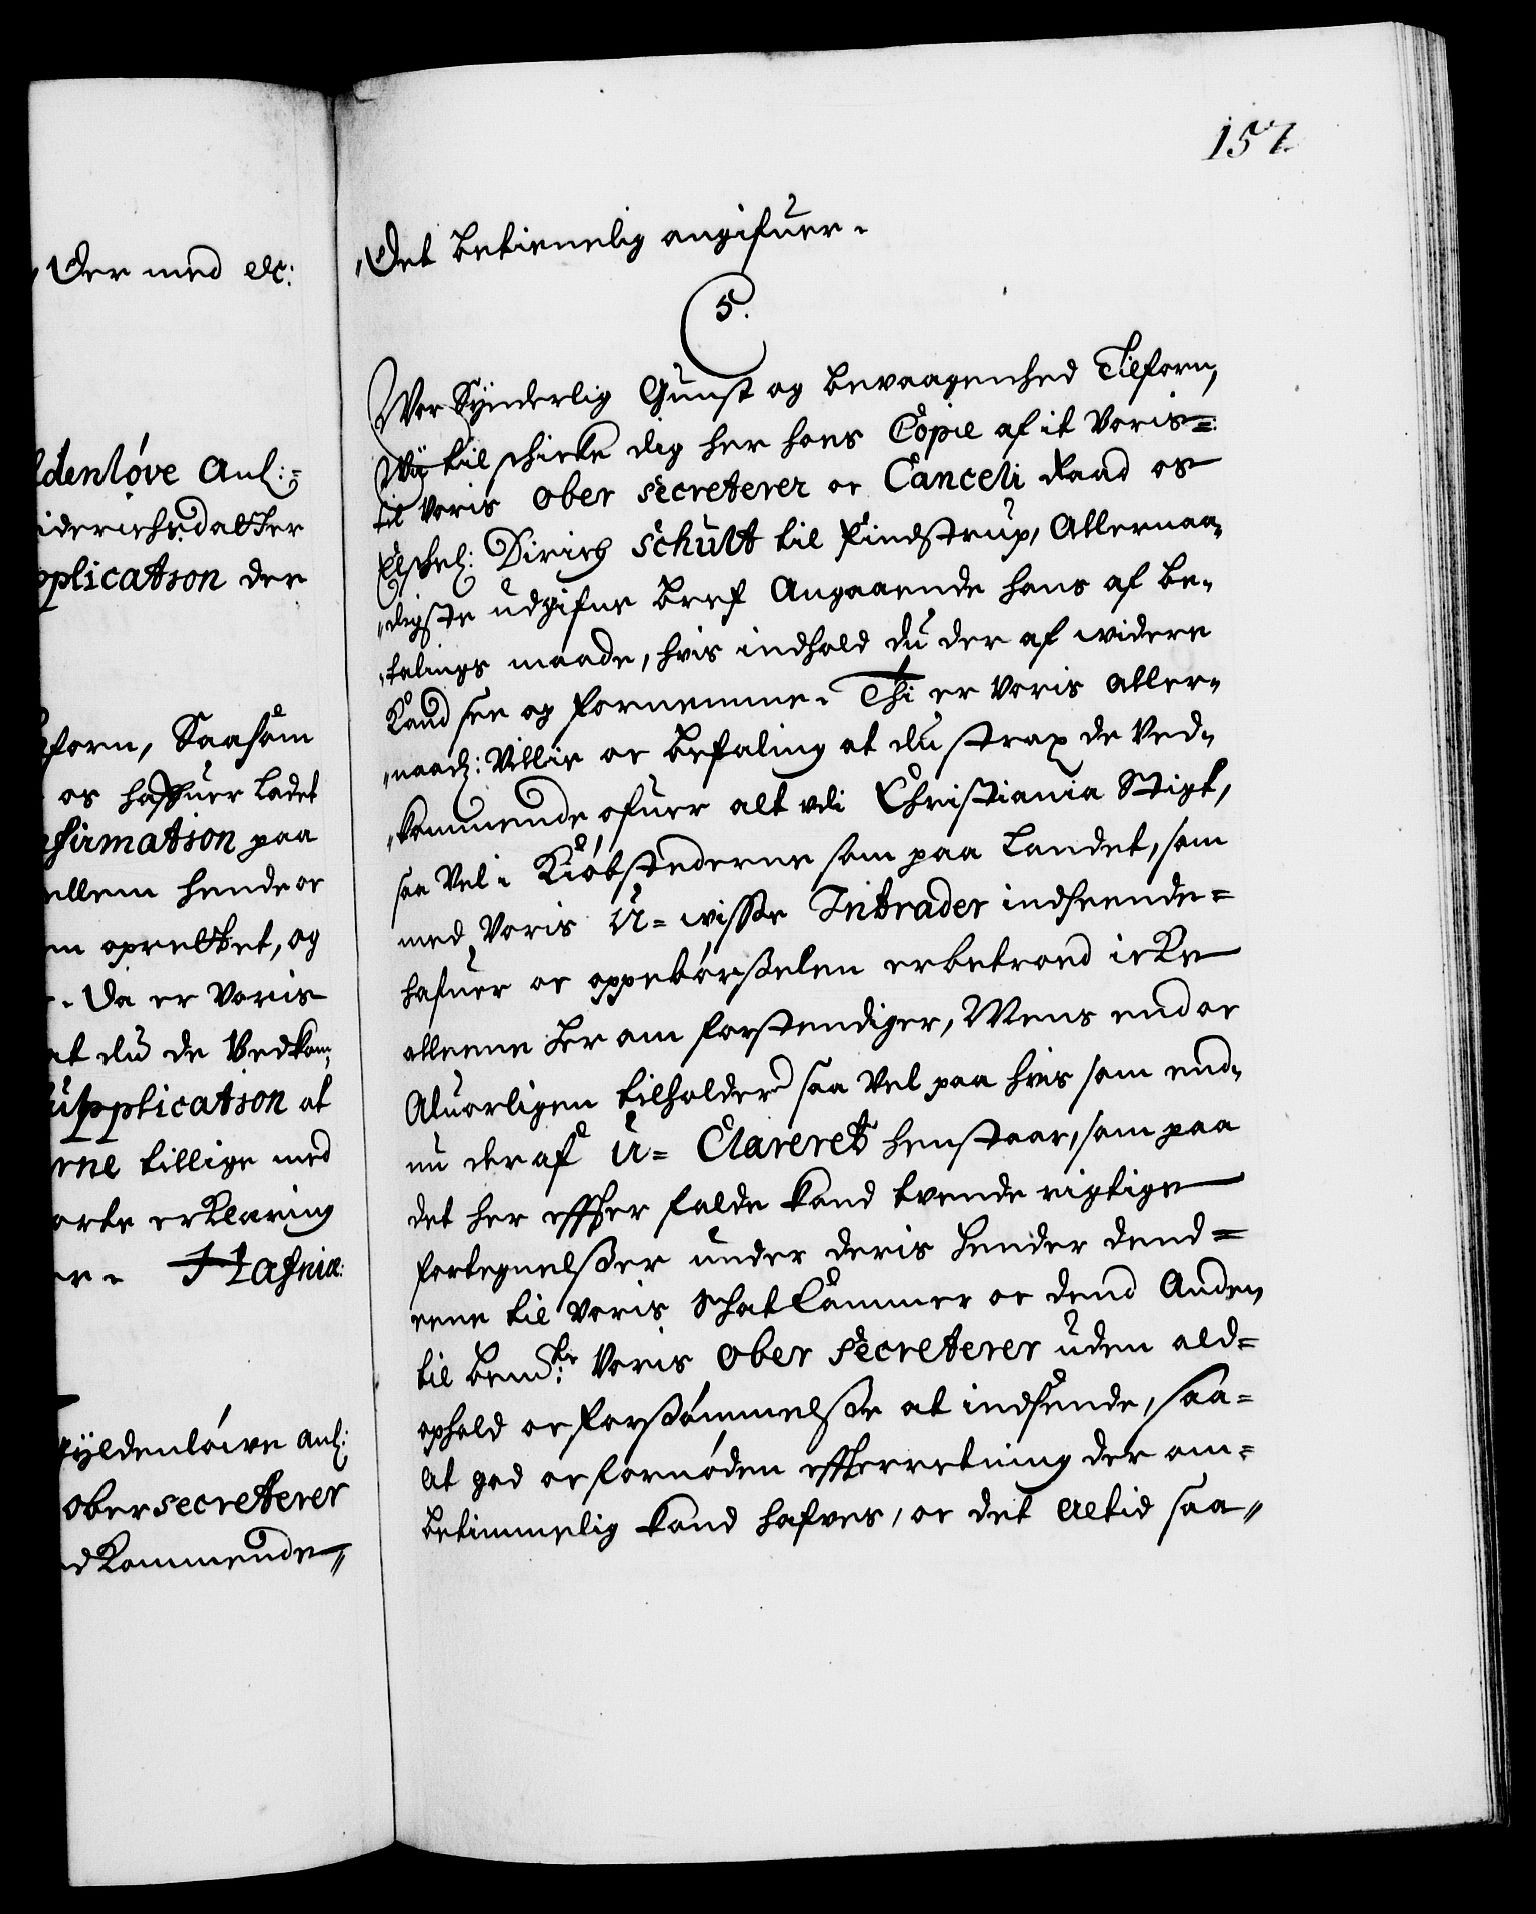 157
"Der med etc:
ldenlöve Anl:=
iderichsdatter
pplication der
forn, Saasom
os haffuer ladet
nfirmation paa
ellem hende oc
en oprettet, og
. da er voris
at du de Vedkom,
upplication at
rne tillige med
orte erklæring
er. Hafniæ:
Gyldenlöive Anl:
Ober secreterer
edkommende"
"Det betienelig angifuer.
5.
Vor Synderlig Gunst og bevaagenhed Tilforn,
Wii tilschicke dig her hoes Copie af it Voris=
til Voris Ober Secreterer oc Canceli Raad os
Elskel: Dirich Schult til Findstrup, Allernaa"
"digste udgifne bref Angaaende hans af be"
"talings maade, hvis indhold du der af widere
Kand see og fornemme. Thi er Voris aller"
"naad: Villie oc befaling at du strax de Ved"
"kommende ofuer alt udi Christiania Stigt,
saa Vel i Kiöbstederne som paa Landet, som
med Voris U=wisse Intrader indseende=
hafuer oc oppebörselen erbetroed icke
alleene her om forstendiger, Mens end oc
Aluorligen tilholder saa Vel paa hvis som end"
nu der af U=Clareret henstaar, som paa
det her effter falde kand tvende rigtige
fortegnelsser under deris hender dend=
eene til Voris Schatkammer oc dend Anden
til bemte: Voris Ober Secreterer uden ald=
ophold oc forsömmelsse at indsende, saa=
at god oc fornöden effterretning der om=
betimmelig kand hafves, oc det altid saa"